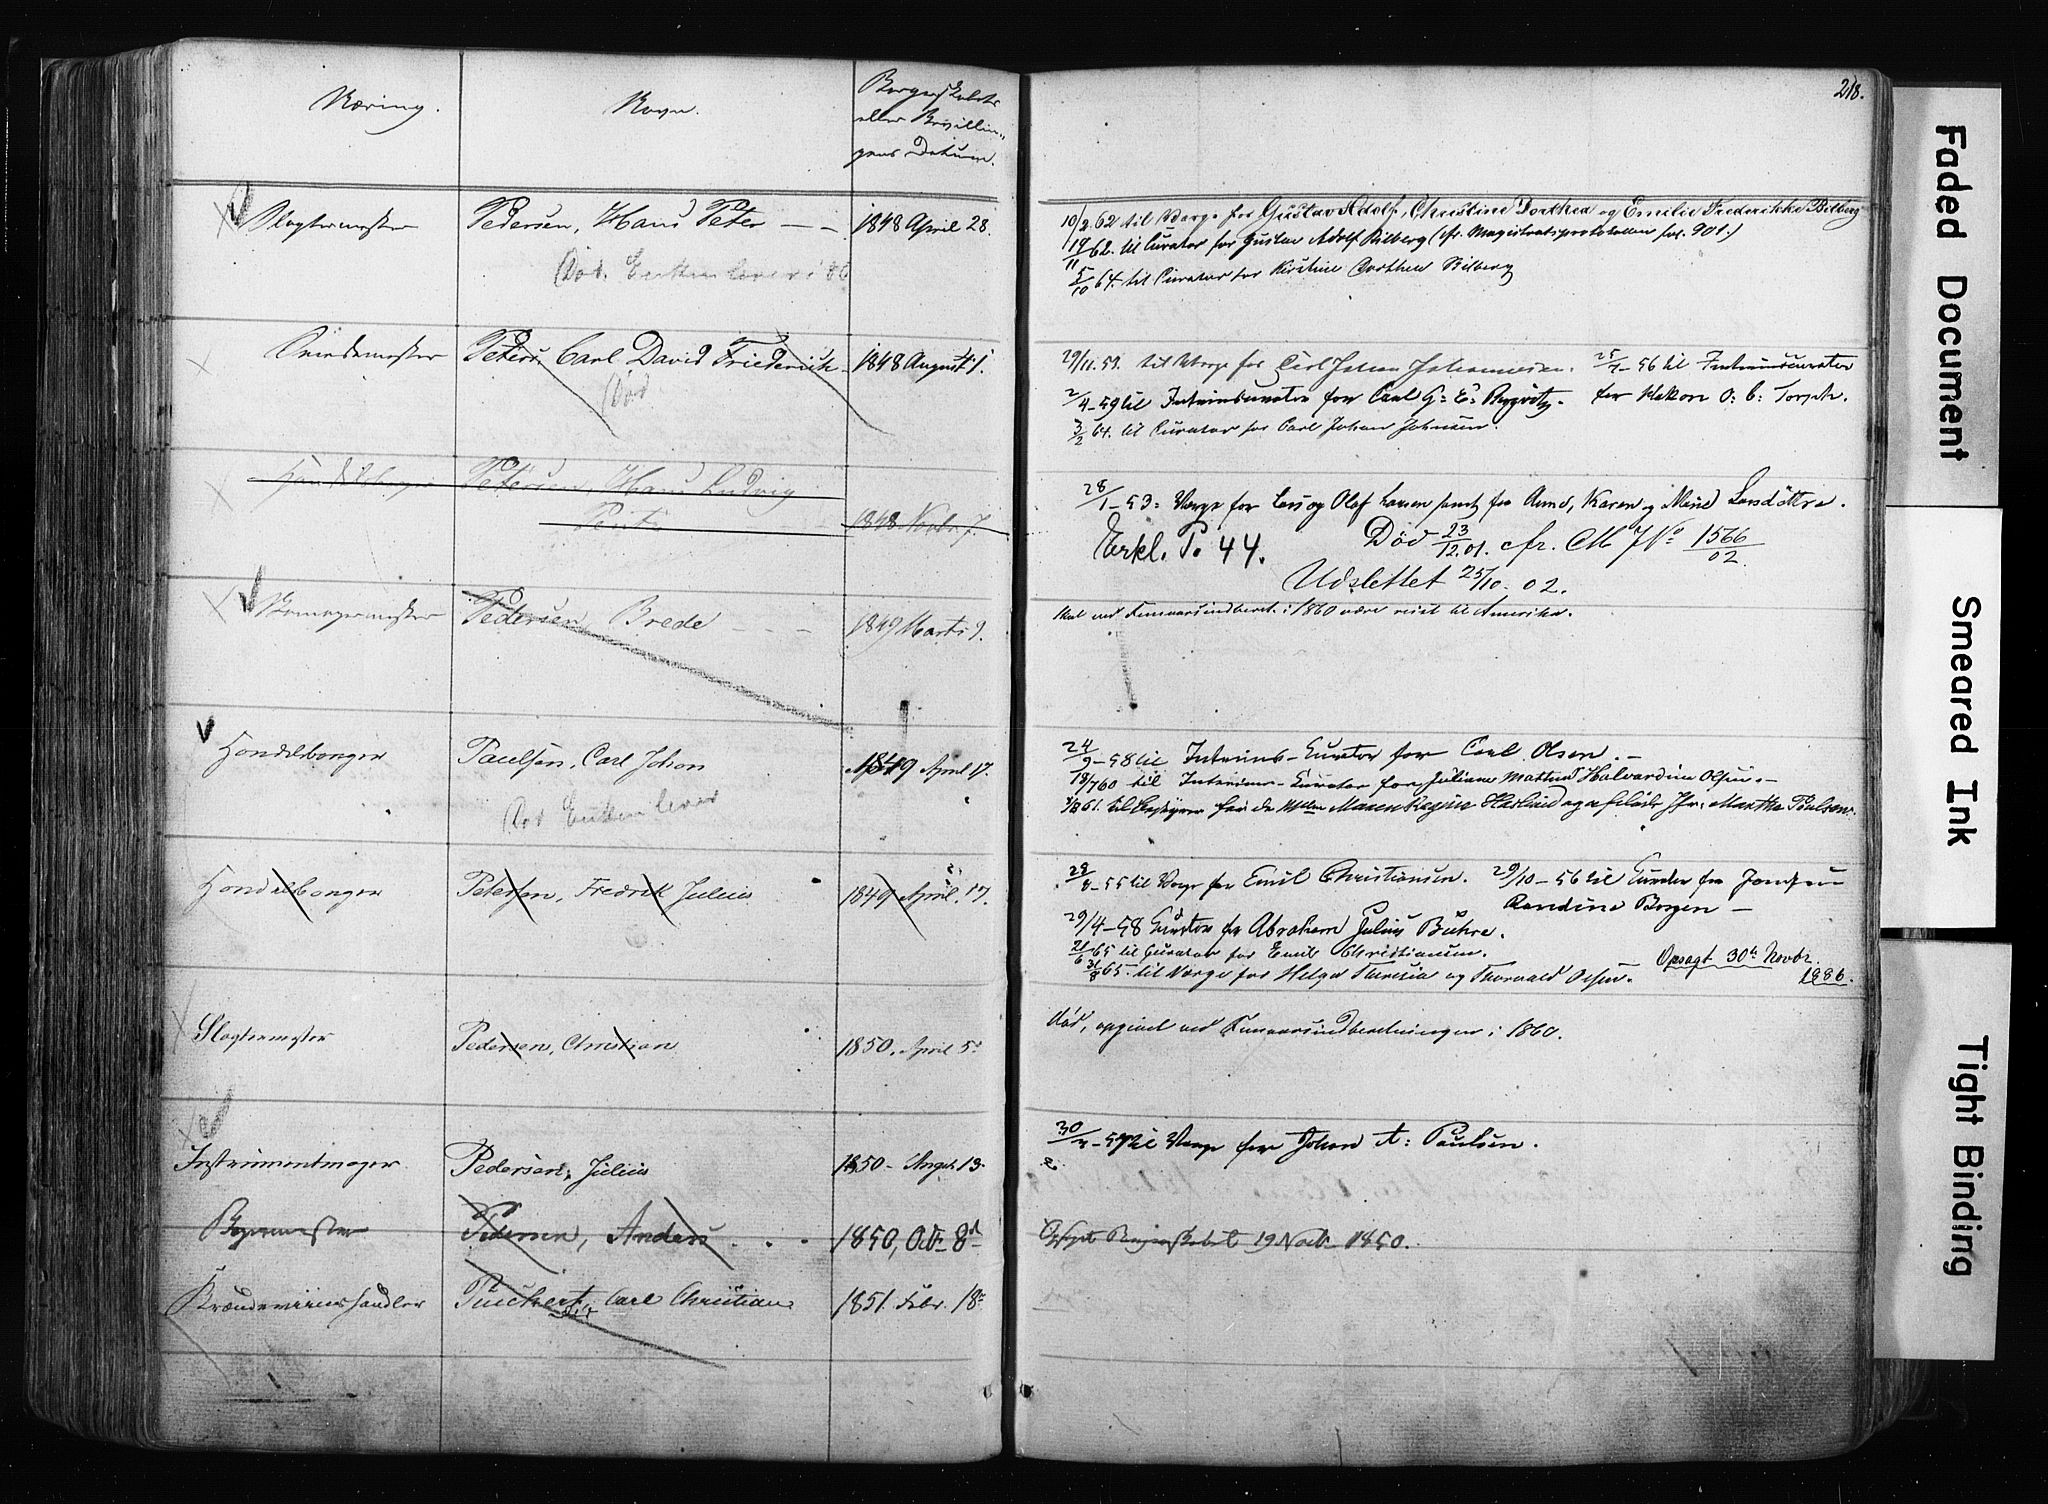 Næring.
Navn.
Borgerskabets
eller Bevillin-
gens Datum.
218.
Slagtermester
Pedersen, Hans Peter
1848 April 28.
Død. Enken lever i 86
10/2 62 til Værge for Gustav Adolf, Christine Dorthea og Emilie Frederikke Bilberg
19/11 62. til Curator for Gustav Adolf Bilberg (cfr. Magistratsprotokollen fol. 901.)
5/10 64. til Curator for Kirstine Dorthea Bilberg
Svendemester
Peters, Carl David Friederich
1848 August 1.
Død
29/11. 53. til Værge for Carl Johan Johannesen.
25/7 - 56 til Interimscurator
for Hakon O: C: Torp
2/4 - 59 til Interimscurator for Carl G: E:
3/2 64. til Curator for Carl Johan Johnsen.
Handelsborger
Petersen, Hans Ludvig
1848 Novbr. 7.
28/1 - 53: Værge for Lars og Olaf Larsen samt for Anne, Karen og Larsdøttre.
Erkl. P. 44.
Død 23/12.01. cfr. M J No 1566/02.
Udslettet 25/10. 02.
Pedersen, Brede
1849 Marts 9.
Skal ved Femaarsindberet. i 1860 være reist til Amerika.
Handelsborger
Paulsen, Carl Johan
1849 April 17.
Død Enken lever
24/9 - 58 til Interims-Curator for Carl Olsen.
18/7 60 til Interims-Curator for Juliane Mathea Halvardine Olsen.
Maren Regine Martha Poulsen
Handelsborger
Petersen, Fredrik Julius
1849 April. 17.
28/8 - 55 til Værge for Emil Christiansen.
29/10 - 56 til Curator for Jomfru
Randine Borgen
29/4 - 58 Curator for Abraham Julius Buhre.
21/6 65 til Curator for Emil Christiansen.
31/8 65. til Værge for Helga Theresia og Thorvald Olsen.
Opsagt 30te Novbr.
1886.
Slagtermester
Pedersen, Christian
1850. April 5.
død, opgivet ved Femaarsindberetningen i 1860.
Instrumentmager
Pedersen, Julius
1850 - Augst. 13.
57 til Værge for Johan A: Paulsen.
Bagermester
Pedersen, Anders
1850, Oct. 8de
Opsagt Borgerskabet 19 Novb. 1850.
Brændeviinshandler
Puckert, Carl Christian
Død
1851. Febr. 18
Faded Document
Smeared Ink
Tight Binding